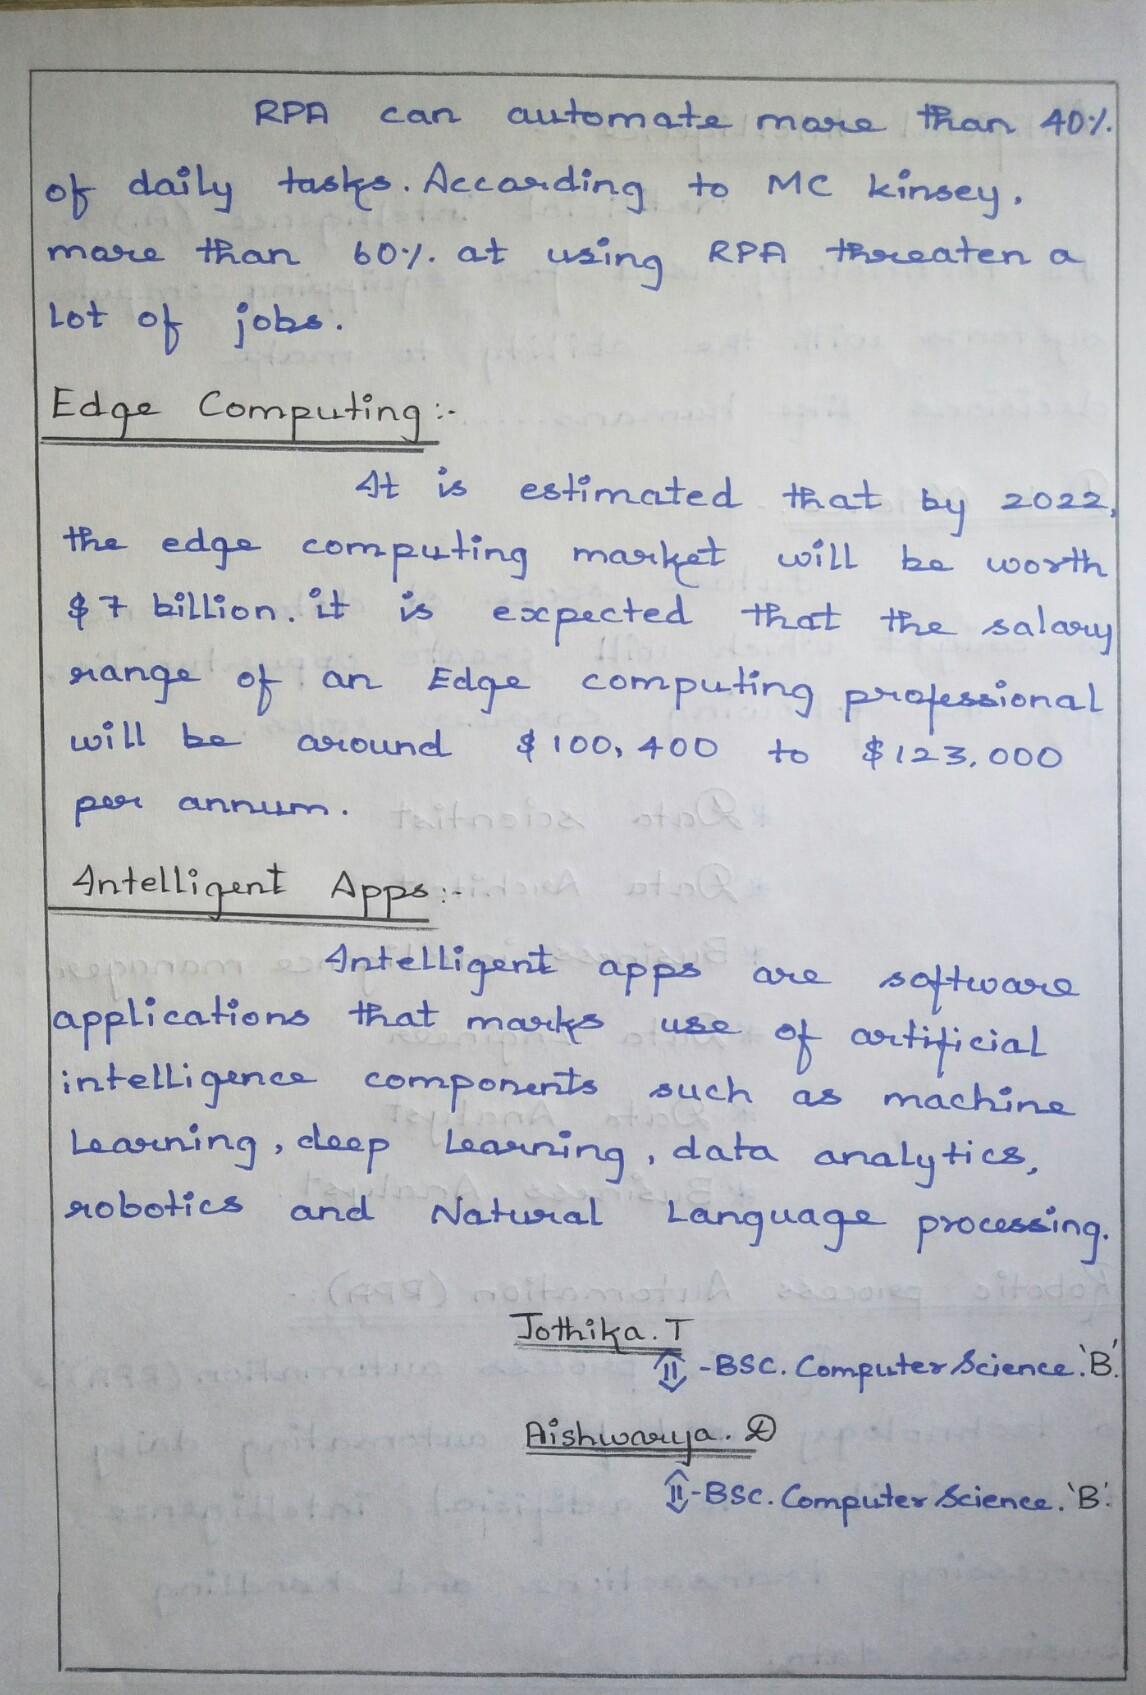 RPA can automate more than 40%
of daily tasks. According to MC kinsey,
more than 60% at using RPA threaten a
Lot of jobs.
Edge Computing:-
It is estimated that by 2022,
the edge computing market will be worth
$7 billion. it is expected that the salary
range of an Edge computing professional
will be around $100,400 to $123,000
per annum.
Intelligent Apps:-
Intelligent apps are software
applications that marks use of artificial
intelligence components such as machine
Learning, deep Learning, data analytics,
robotics and Natural Language processing.
Jothika. T
II -BSC. Computer Science. 'B'.
Aishwarya. D
II -BSC. Computer Science. 'B'.